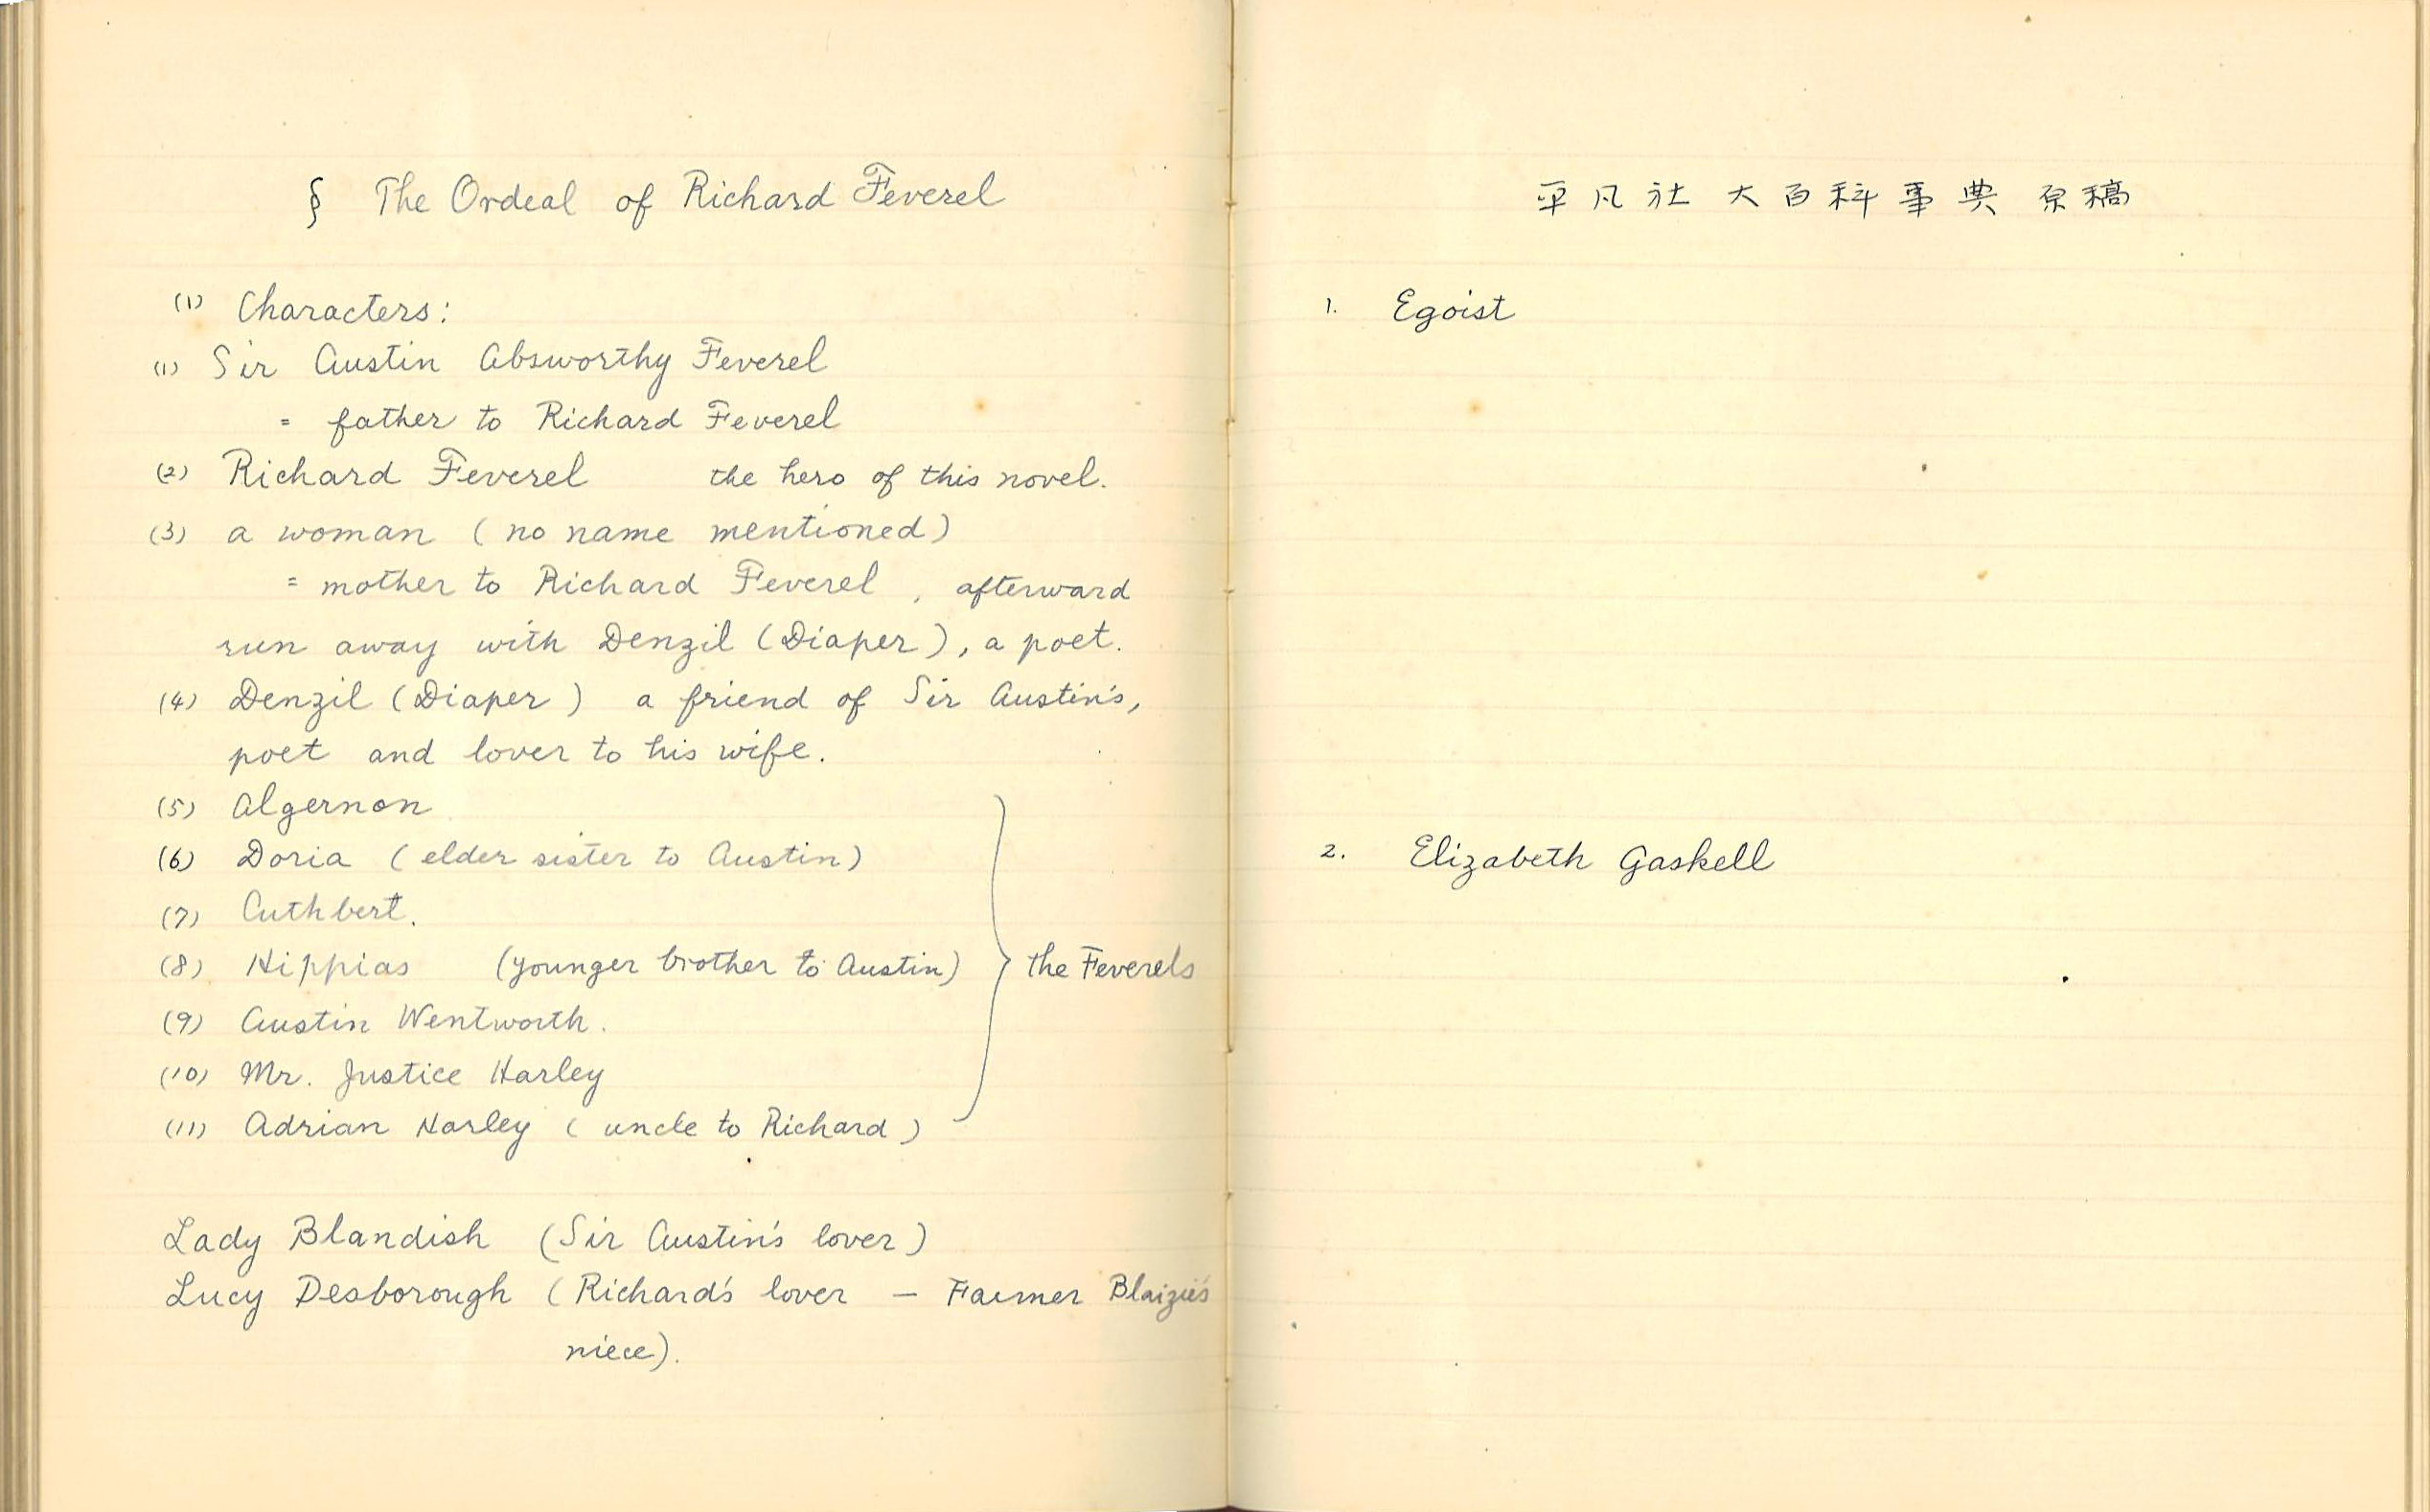 § The Ordeal of Richard Feverel
(1) Characters:
(1) Sir Austin Absworthy Feverel
= father to Richard Feverel
(2) Richard Feverel the hero of this novel.
(3) a woman (no name mentioned)
= mother to Richard Feverel, afterward
run away with Denzil (Diaper), a poet.
(4) Denzil (Diaper) a friend of Sir Austin's,
poet and lover to his wife.
(5) Algernon
(6) Doria (elder sister to Austin)
(7) Cuthbert.
(8) Hippias (younger brother to Austin)
the Feverels
(9) Austin Wentworth.
(10) Mr. Justice Harley
(11) Adrian Harley (uncle to Richard)
Lady Blandish (Sir Austin's lover)
Lucy Desborough (Richard's lover — Farmer Blaizie's
niece).
平凡社 大百科事典 原稿
1. Egoist
2. Elizabeth Gaskell